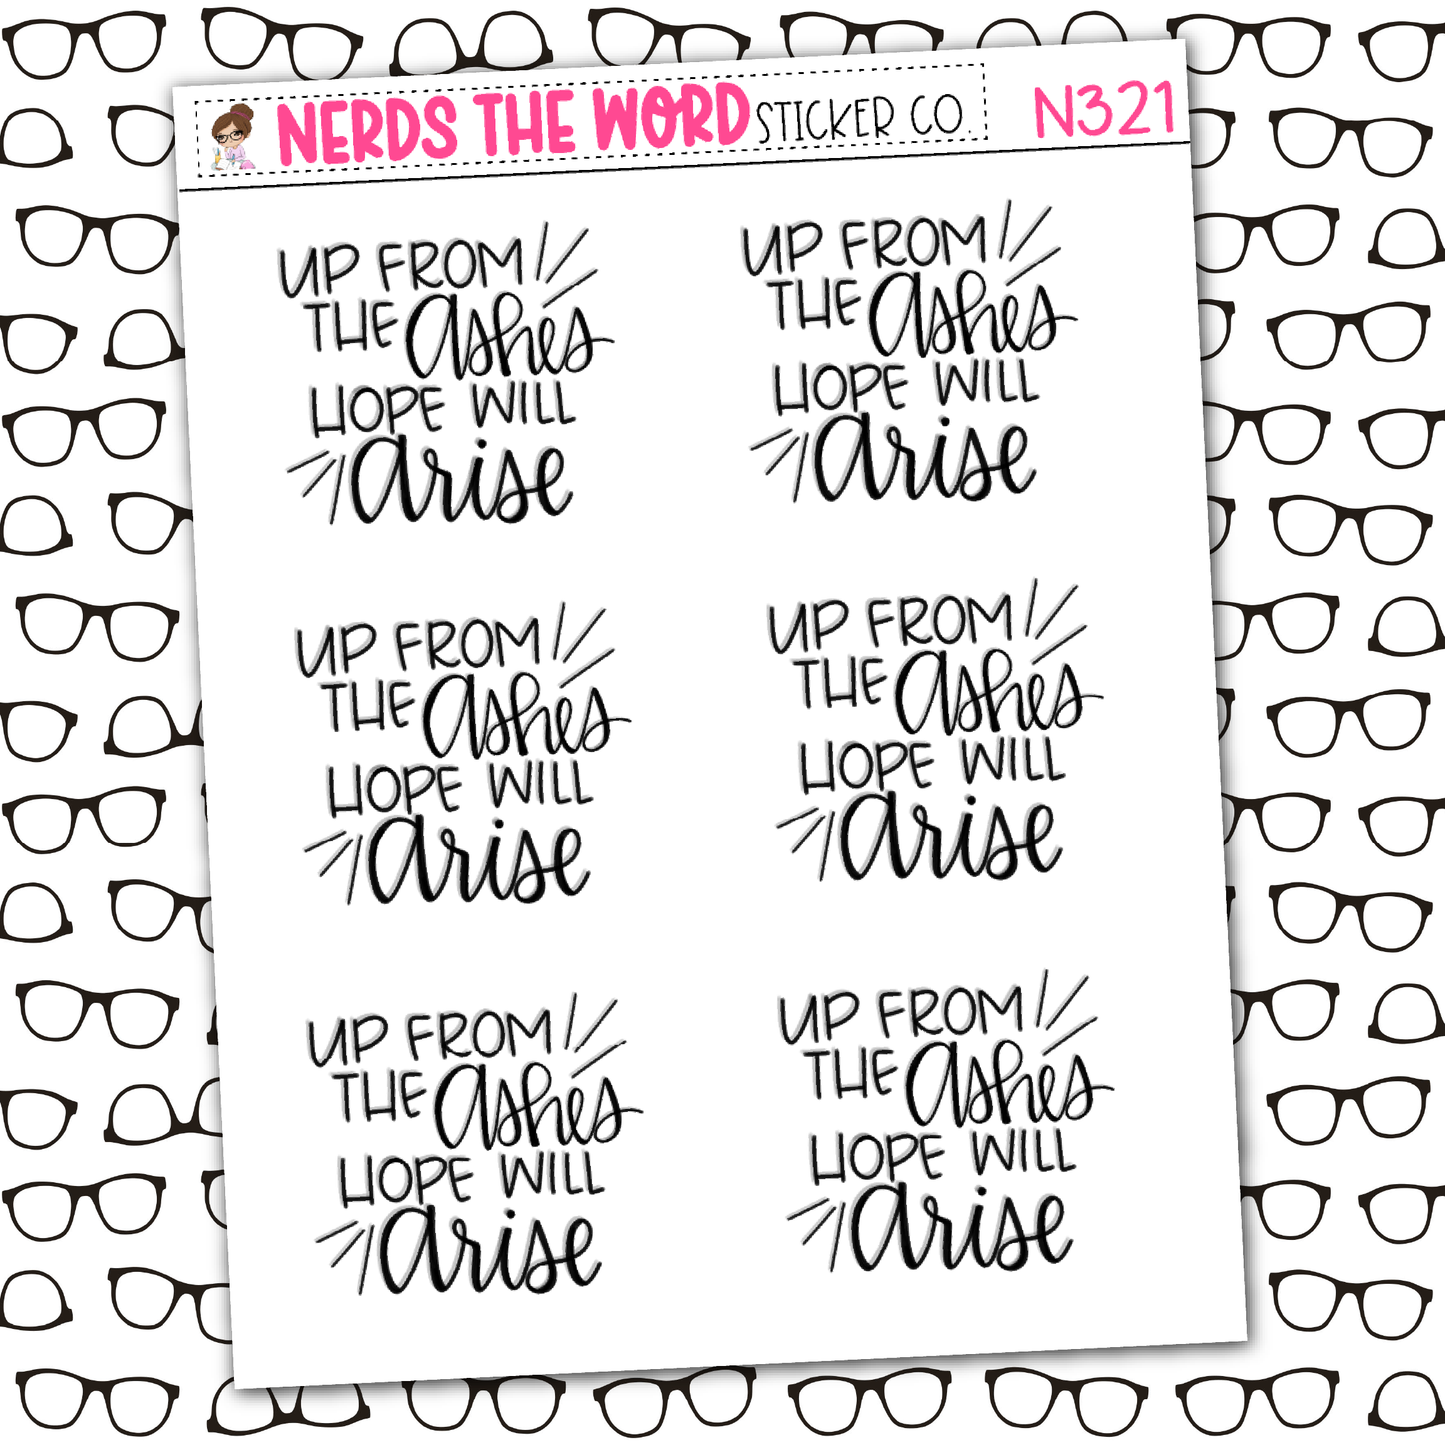 NERDS THE WORD STICKER CO.
N321
UP FROM
THE Ashes
HOPE WILL
arise
UP FROM
THE Ashes
HOPE WILL
arise
UP FROM
THE Ashes
HOPE WILL
arise
UP FROM
THE Ashes
HOPE WILL
arise
UP FROM
THE Ashes
HOPE WILL
arise
UP FROM
THE Ashes
HOPE WILL
arise